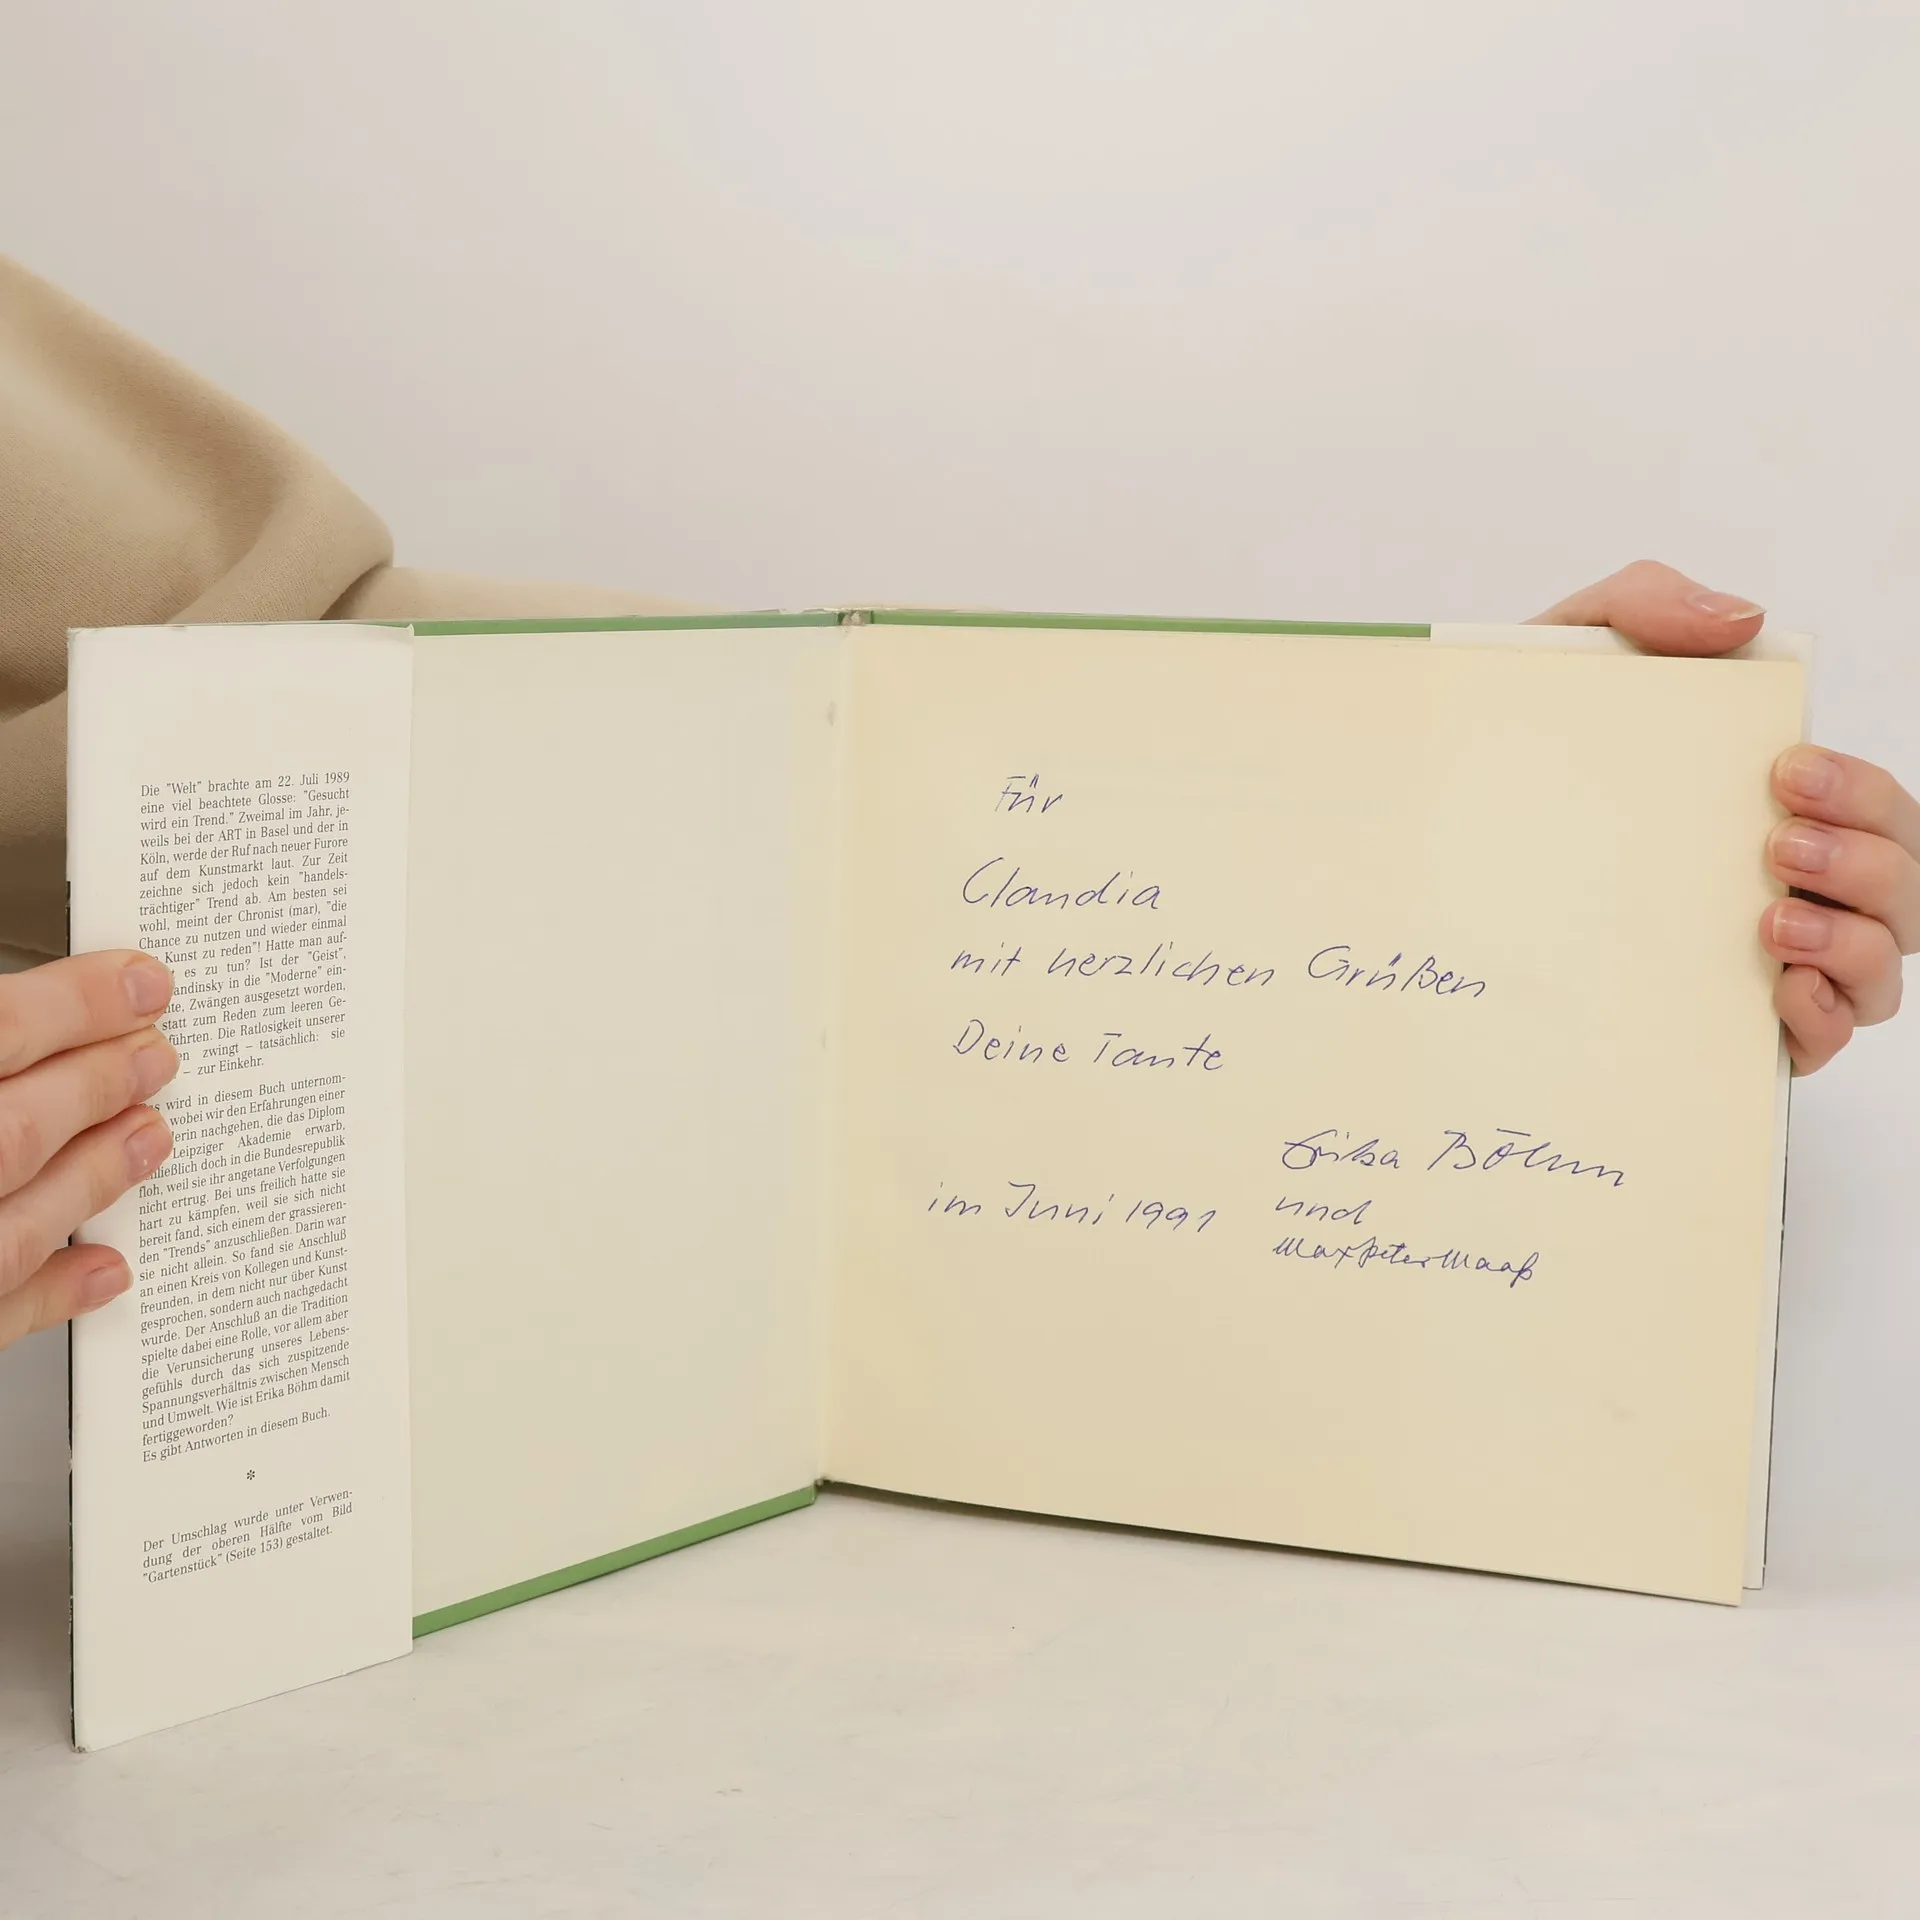 Die "Welt" brachte am 22. Juli 1989
eine viel beachtete Glosse: "Gesucht
wird ein Trend." Zweimal im Jahr, je-
weils bei der ART in Basel und der in
Köln, werde der Ruf nach neuer Furore
auf dem Kunstmarkt laut. Zur Zeit
zeichne sich jedoch kein "handels-
trächtiger" Trend ab. Am besten sei
wohl, meint der Chronist (mar), "die
Chance zu nutzen und wieder einmal
Kunst zu reden"! Hatte man auf-
es zu tun? Ist der "Geist",
andinsky in die "Moderne" ein-
Zwängen ausgesetzt worden,
statt zum Reden zum leeren Ge-
führten. Die Ratlosigkeit unserer
zwingt – tatsächlich: sie
– zur Einkehr.
wird in diesem Buch unternom-
wobei wir den Erfahrungen einer
lerin nachgehen, die das Diplom
Leipziger Akademie erwarb,
ließlich doch in die Bundesrepublik
floh, weil sie ihr angetane Verfolgungen
nicht ertrug. Bei uns freilich hatte sie
hart zu kämpfen, weil sie sich nicht
bereit fand, sich einem der grassieren-
den "Trends" anzuschließen. Darin war
sie nicht allein. So fand sie Anschluß
an einen Kreis von Kollegen und Kunst-
freunden, in dem nicht nur über Kunst
gesprochen, sondern auch nachgedacht
wurde. Der Anschluß an die Tradition
spielte dabei eine Rolle, vor allem aber
die Verunsicherung unseres Lebens-
gefühls durch das sich zuspitzende
Spannungsverhältnis zwischen Mensch
und Umwelt. Wie ist Erika Böhm damit
fertiggeworden?
Es gibt Antworten in diesem Buch.
*
Der Umschlag wurde unter Verwen-
dung der oberen Hälfte vom Bild
"Gartenstück" (Seite 153) gestaltet.
Für
Claudia
mit herzlichen Grüßen
Deine Tante
Erika Böhm
im Juni 1991 und
Max Peter Maaß